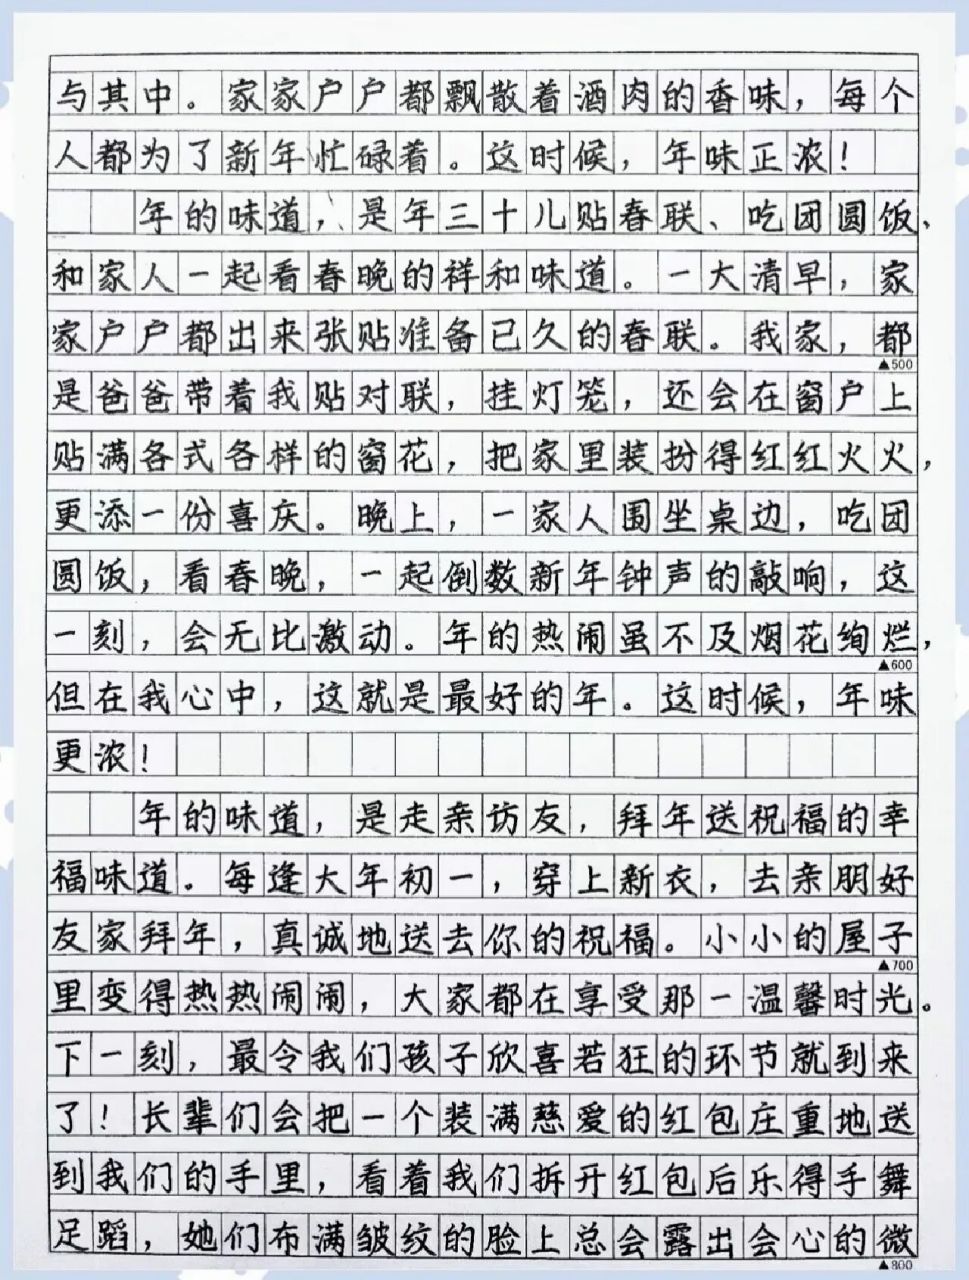 与其中。家家户户都飘散着酒肉的香味，每个
人都为了新年忙碌着。这时候，年味正浓！
年的味道，、是年三十儿贴春联、吃团圆饭、
和家人一起看春晚的祥和味道。一大清早，家
家户户都出来张贴准备已久的春联。我家，都
▲500
是爸爸带着我贴对联，挂灯笼，还会在窗户上
贴满各式各样的窗花，把家里装扮得红红火火，
更添一份喜庆。晚上，一家人围坐桌边，吃团
圆饭，看春晚，一起倒数新年钟声的敲响，这
一刻，会无比激动。年的热闹虽不及烟花绚烂，
▲600
但在我心中，这就是最好的年。这时候，年味
更浓！
年的味道，是走亲访友，拜年送祝福的幸
福味道。每逢大年初一，穿上新衣，去亲朋好
友家拜年，真诚地送去你的祝福。小小的屋子
▲700
里变得热热闹闹，大家都在享受那一温馨时光。
下一刻，最令我们孩子欣喜若狂的环节就到来
了！长辈们会把一个装满慈爱的红包庄重地送
到我们的手里，看着我们拆开红包后乐得手舞
足蹈，她们布满皱纹的脸上总会露出会心的微
▲800